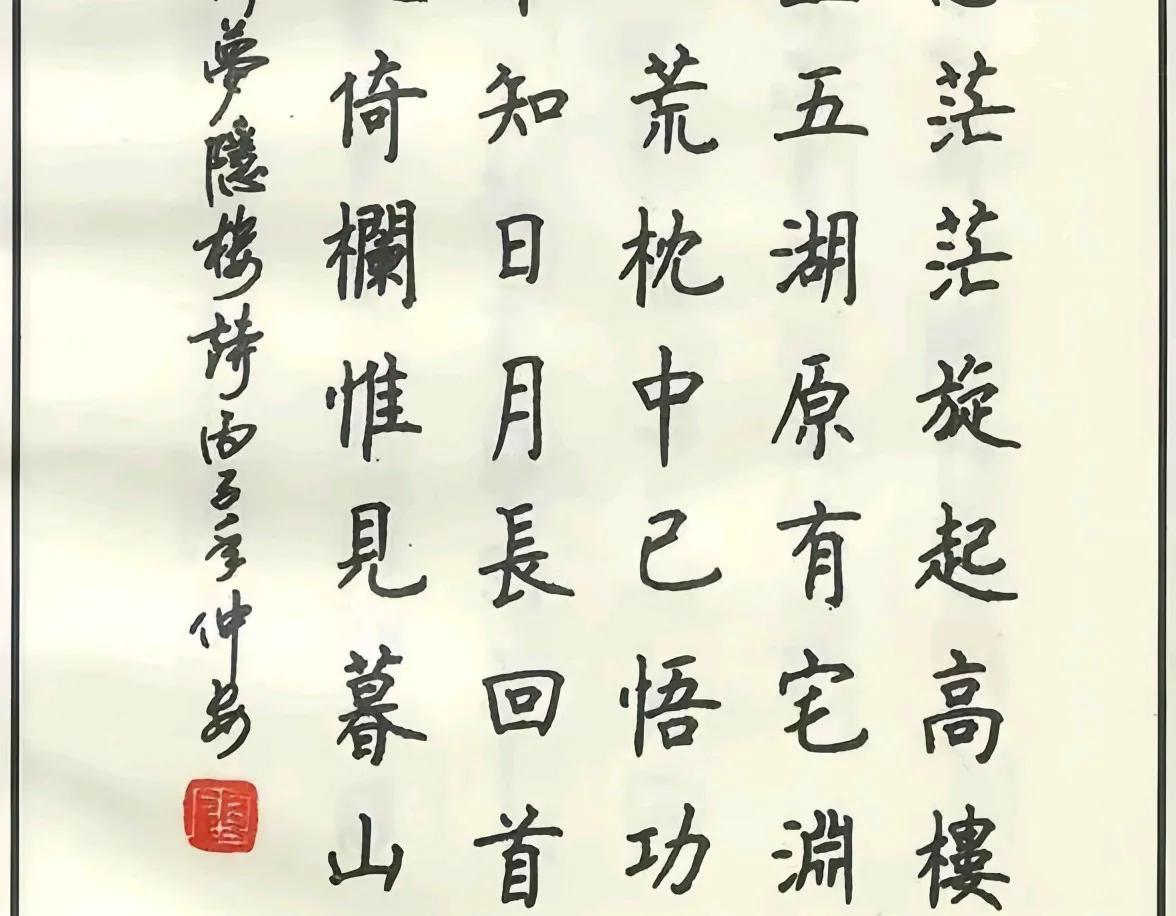 茫茫旋起高樓
五湖原有宅淵
荒枕中已悟功
知日月長回首
倚欄惟見暮山
夢隱樓詩丙子年仲安